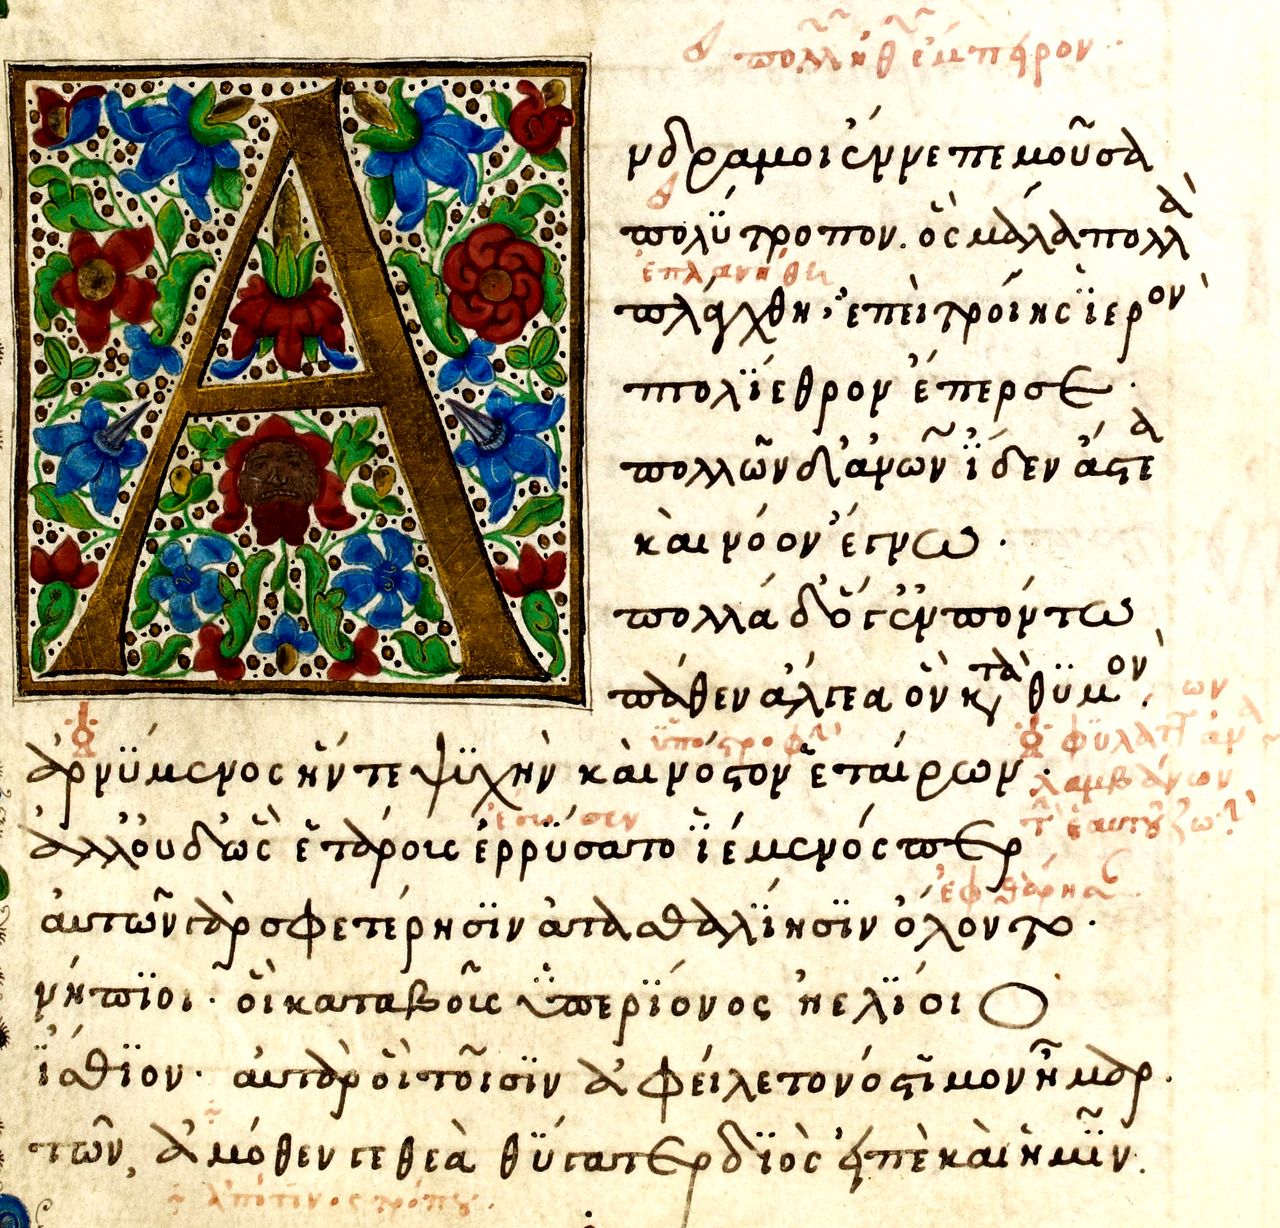 πολλῶν ἔμπειρον
Α
νδρα μοι ἔννεπε μοῦσα
πολύτροπον. ὃς μάλα πολλὰ
ἐπλανήθη
πλάγχθη· ἐπεὶ τροίης ἱερὸν
πτολίεθρον ἔπερσε.
πολλῶν δ' ἀνθρώπων ἴδεν ἄστεα
καὶ νόον ἔγνω.
πολλὰ δ' ὅγ' ἐν πόντω
πάθεν ἄλγεα ὃν κατὰ θυμόν.
ὑποστροφὴν
ἀρνύμενος ἥν τε ψυχὴν καὶ νόστον ἑταίρων.
λαμβάνων
ἔσωσεν
ἀλλ' οὐδ' ὧς ἑτάρους ἐρρύσατο ἱέμενός περ
ἐφθάρησαν
αὐτῶν γὰρ σφετέρησιν ἀτασθαλίησιν ὄλοντο.
νήπιοι· οἳ κατὰ βοῦς ὑπερίονος ἠελίοιο
ἤσθιον· αὐτὰρ ὃ τοῖσιν ἀφείλετο νόστιμον ἦμαρ.
τῶν, ἀμόθεν γε θεὰ θύγατερ διὸς εἰπὲ καὶ ἡμῖν.
ἀπό τινος τρόπου.